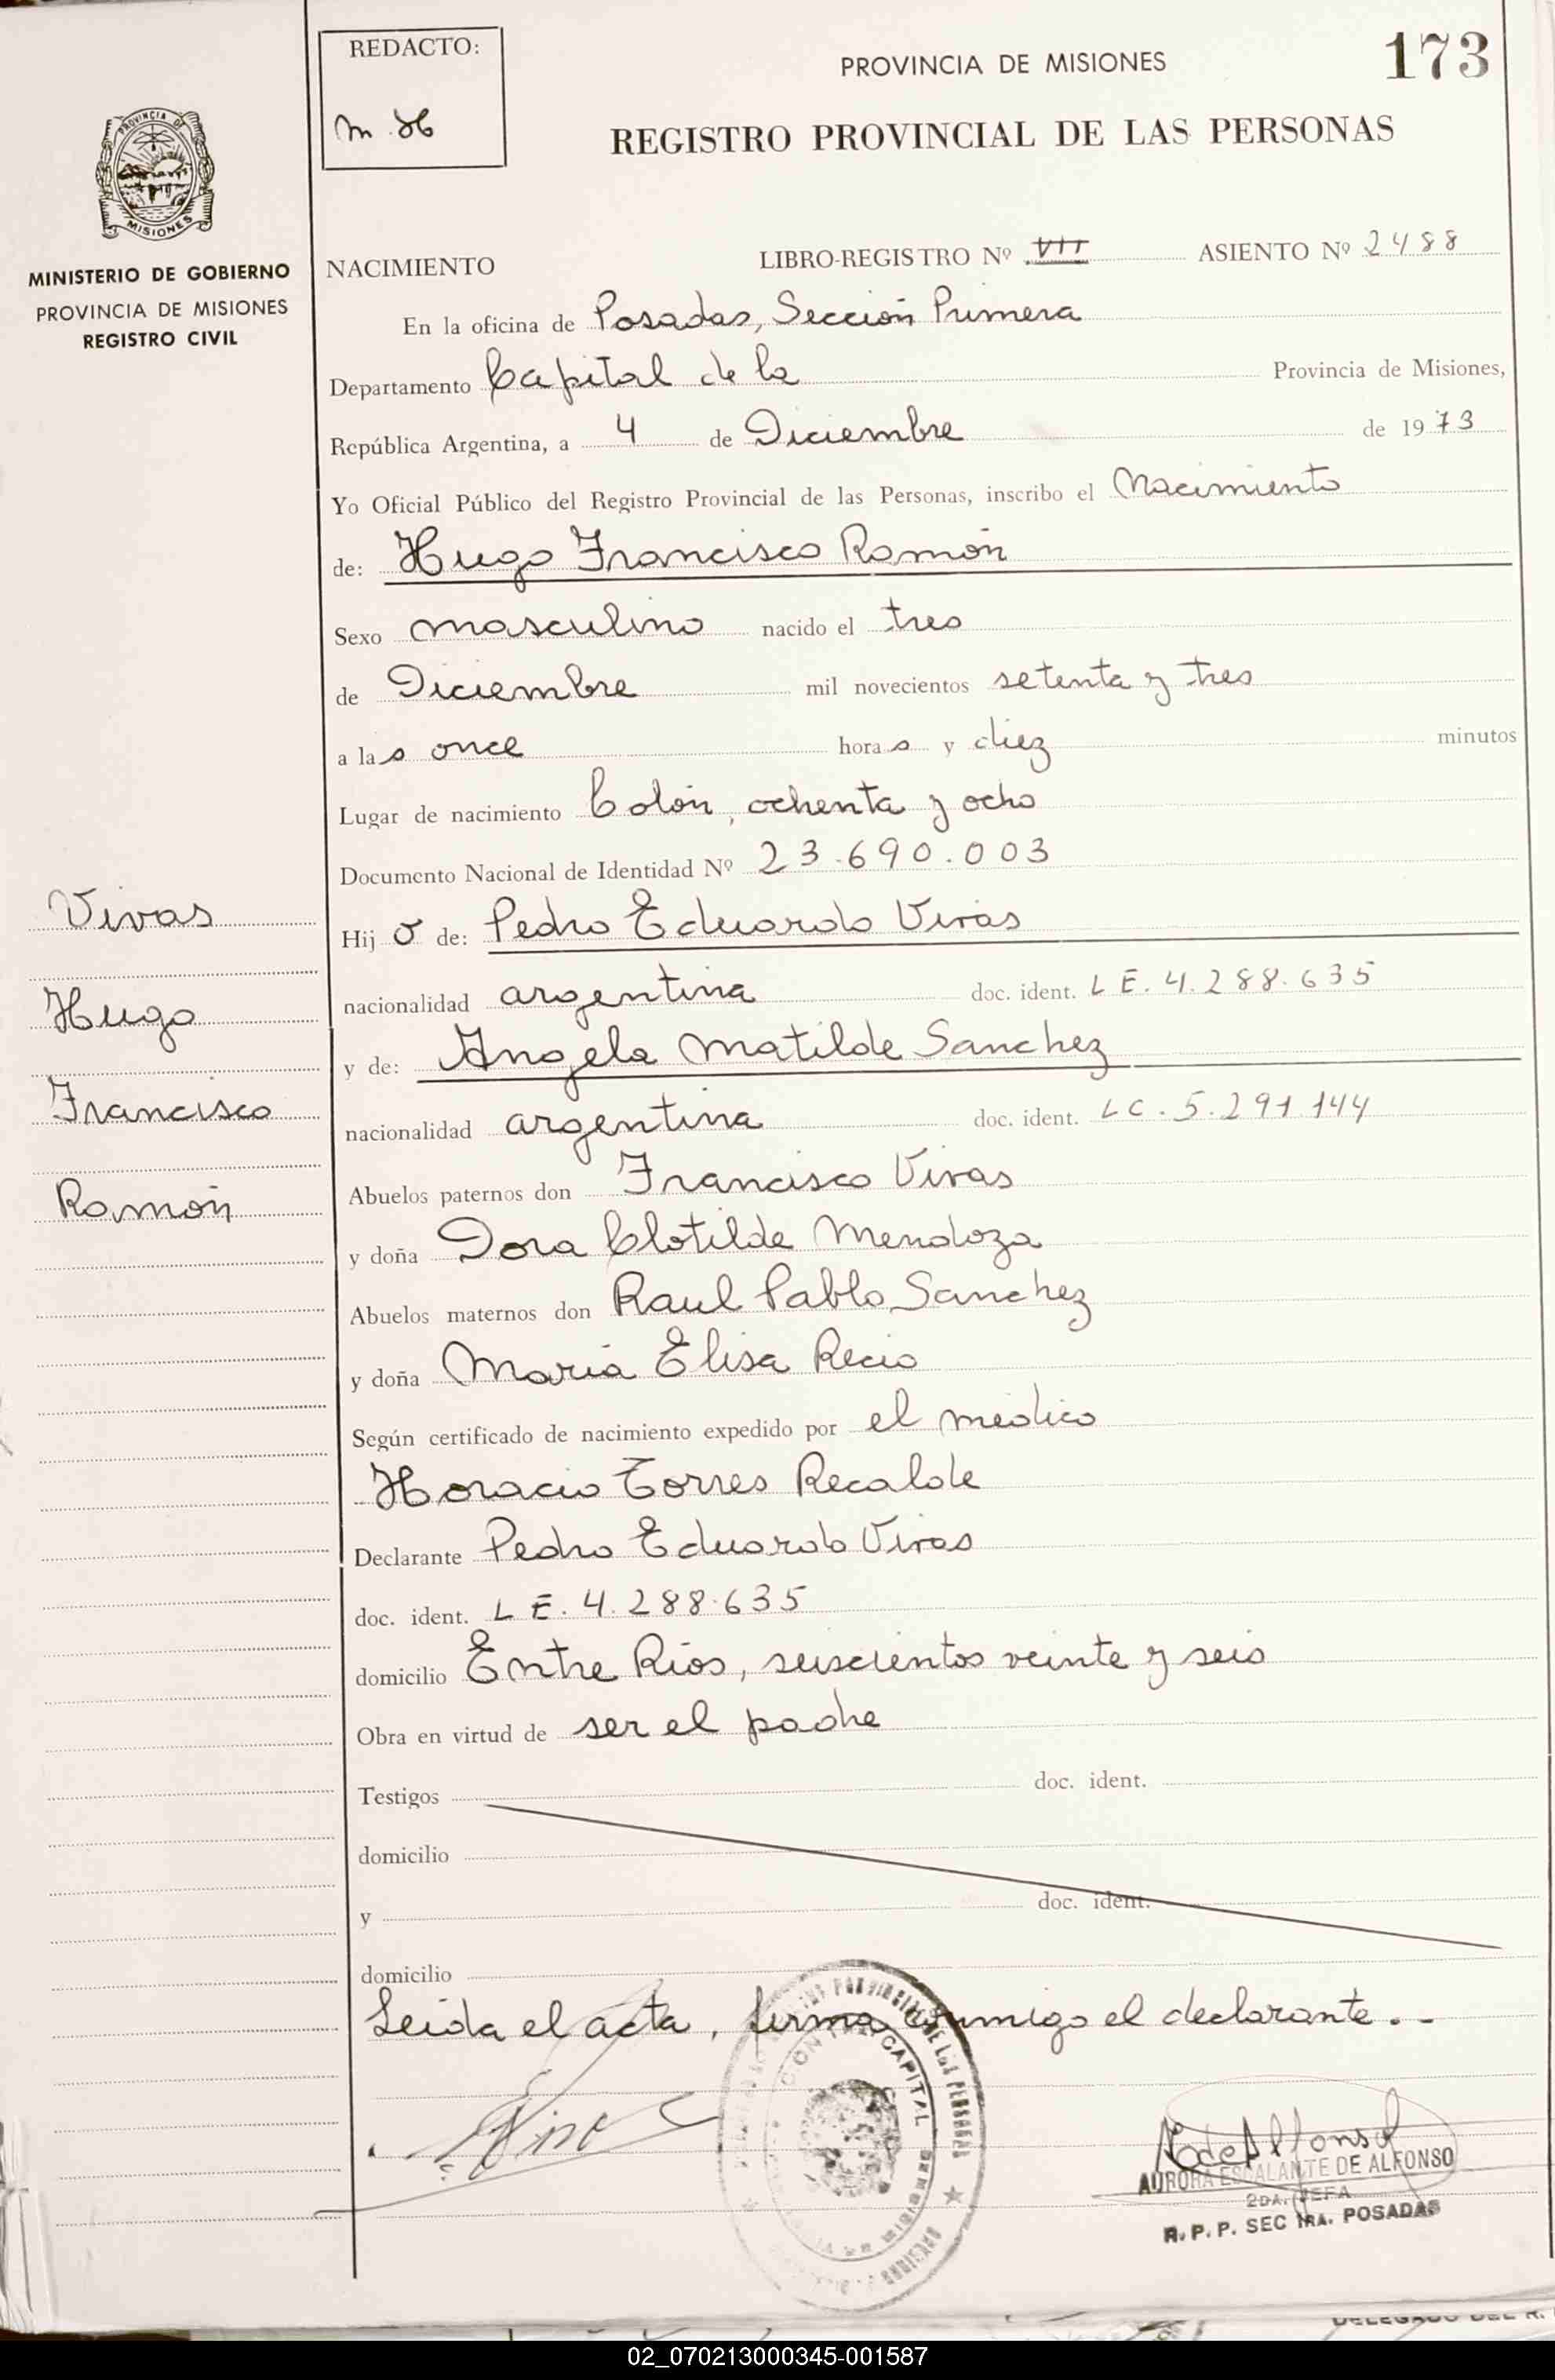 REDACTO:
PROVINCIA DE MISIONES
173
REGISTRO PROVINCIAL DE LAS PERSONAS
PROVINCIA DE
MISIONES
MINISTERIO DE GOBIERNO
PROVINCIA DE MISIONES
REGISTRO CIVIL
NACIMIENTO LIBRO-REGISTRO Nº VII ASIENTO Nº 2488
En la oficina de Posadas, Sección Primera
Departamento Capital de la Provincia de Misiones,
República Argentina, a 4 de Diciembre de 1973
Yo Oficial Público del Registro Provincial de las Personas, inscribo el Nacimiento
de: Hugo Francisco Ramón
Sexo masculino nacido el tres
de Diciembre mil novecientos setenta y tres
a las once horas y diez minutos
Lugar de nacimiento Colón, ochenta y ocho
Documento Nacional de Identidad Nº 23.690.003
Vivas
Hijo de: Pedro Eduardo Vivas
nacionalidad argentina doc. ident. L E. 4.288.635
Hugo
y de: Angela Matilde Sanchez
Francisco
nacionalidad argentina doc. ident. L C. 5.291.144
Abuelos paternos don Francisco Vivas
Ramón
y doña Dora Clotilde Mendoza
Abuelos maternos don Raul Pablo Sanchez
y doña Maria Elisa Recio
Según certificado de nacimiento expedido por el medico
Horacio Torres Recalde
Declarante Pedro Eduardo Vivas
doc. ident. L E. 4.288.635
domicilio Entre Ríos, seiscientos veinte y seis
Obra en virtud de ser el padre
Testigos doc. ident.
domicilio
y doc. ident.
domicilio
Leida el acta, firma conmigo el declarante.-
PROVINCIAL DE LAS PERSONAS
CAPITAL
MISIONES
AdeAlfonso
AURORA ESCALANTE DE ALFONSO
2DA. JEFA
R. P. P. SEC 1RA. POSADAS
02_070213000345-001587